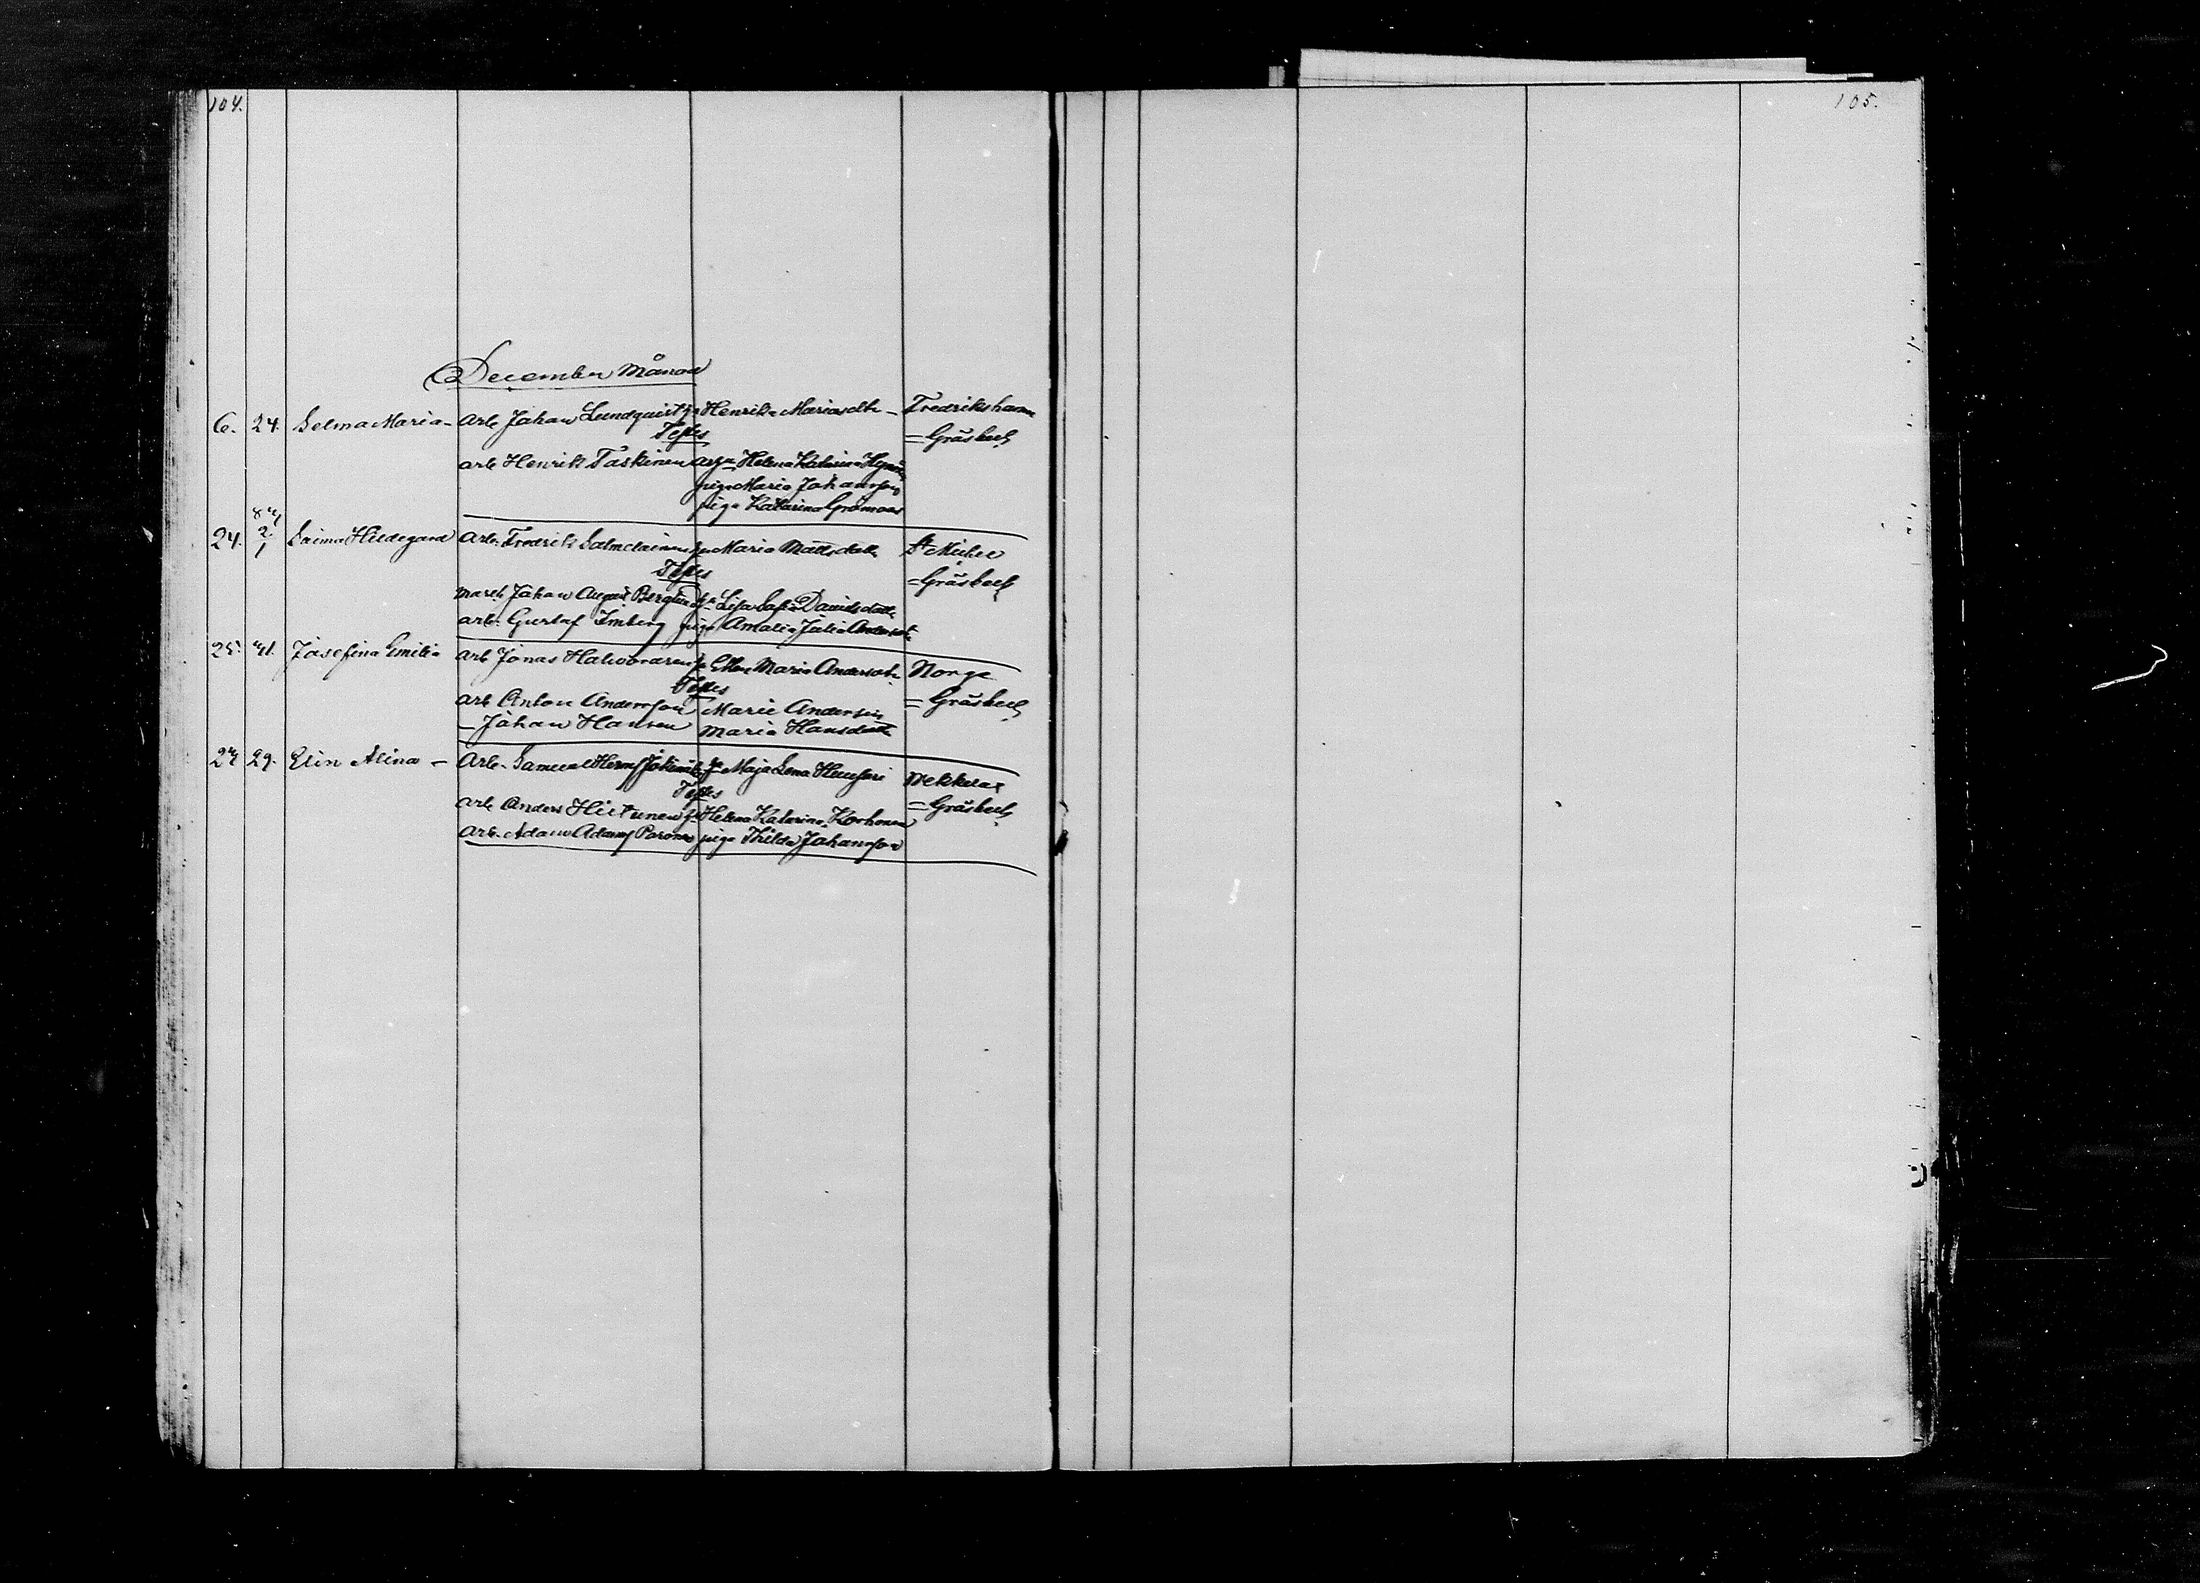 104.
105.
December Månad
6. 24. Selma Maria - Arb Johan Lundqvist Henrika Mariasdtr - Fredrikshamn
Testes = Gräsbeck
arb Henrik Taskinen Helena Katarina
piga Maria Johansson
piga Katarina
24. 2/1 Saima Hildegard Arb. Fredrik Salmelainen Maria Mattsdotter St Michel
Testes = Gräsbeck
Johan August Berglund Lisa Sofia Davidsdotter
arb. Gustaf Imberg piga Amalia Julia
25. 31. Josefina Emilia arb Jonas Halvorsen Ellen Maria Andersdtr Norge
Testes
arb Anton Andersson Marie Andersin = Gräsbeck
- Johan Hansen Maria Hansdotter
27. 29. Elin Alina - Arb. Samuel Maja Lena
Testes = Gräsbeck
arb Anders Hietunen Helena Katarina Korhonen
Arb. Adam piga Thilda Johansson